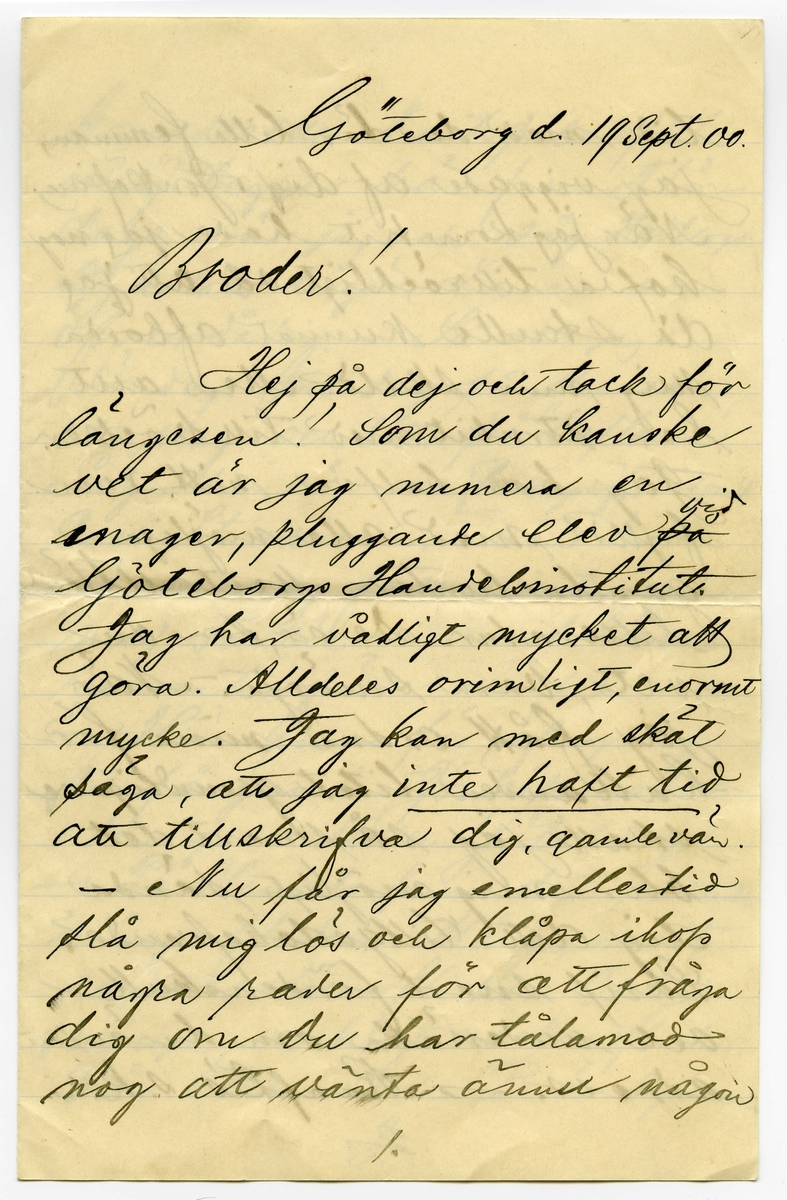 Göteborg d. 19 Sept. 00.
Broder!
Hej på dej och tack för
längesen! Som du kanske
vet är jag numera en
mager, pluggande elev på vid
Göteborgs Handelsinstitut.
Jag har vådligt mycket att
göra. Alldeles orimligt, enormt
mycke. Jag kan med skäl
säga, att jag inte haft tid
att tillskrifva dig, gamle vän.
— Nu får jag emellertid
slå mig lös och klåpa ihop
några rader för att fråga
dig om Du har tålamod
nog att vänta ännu någon
1.